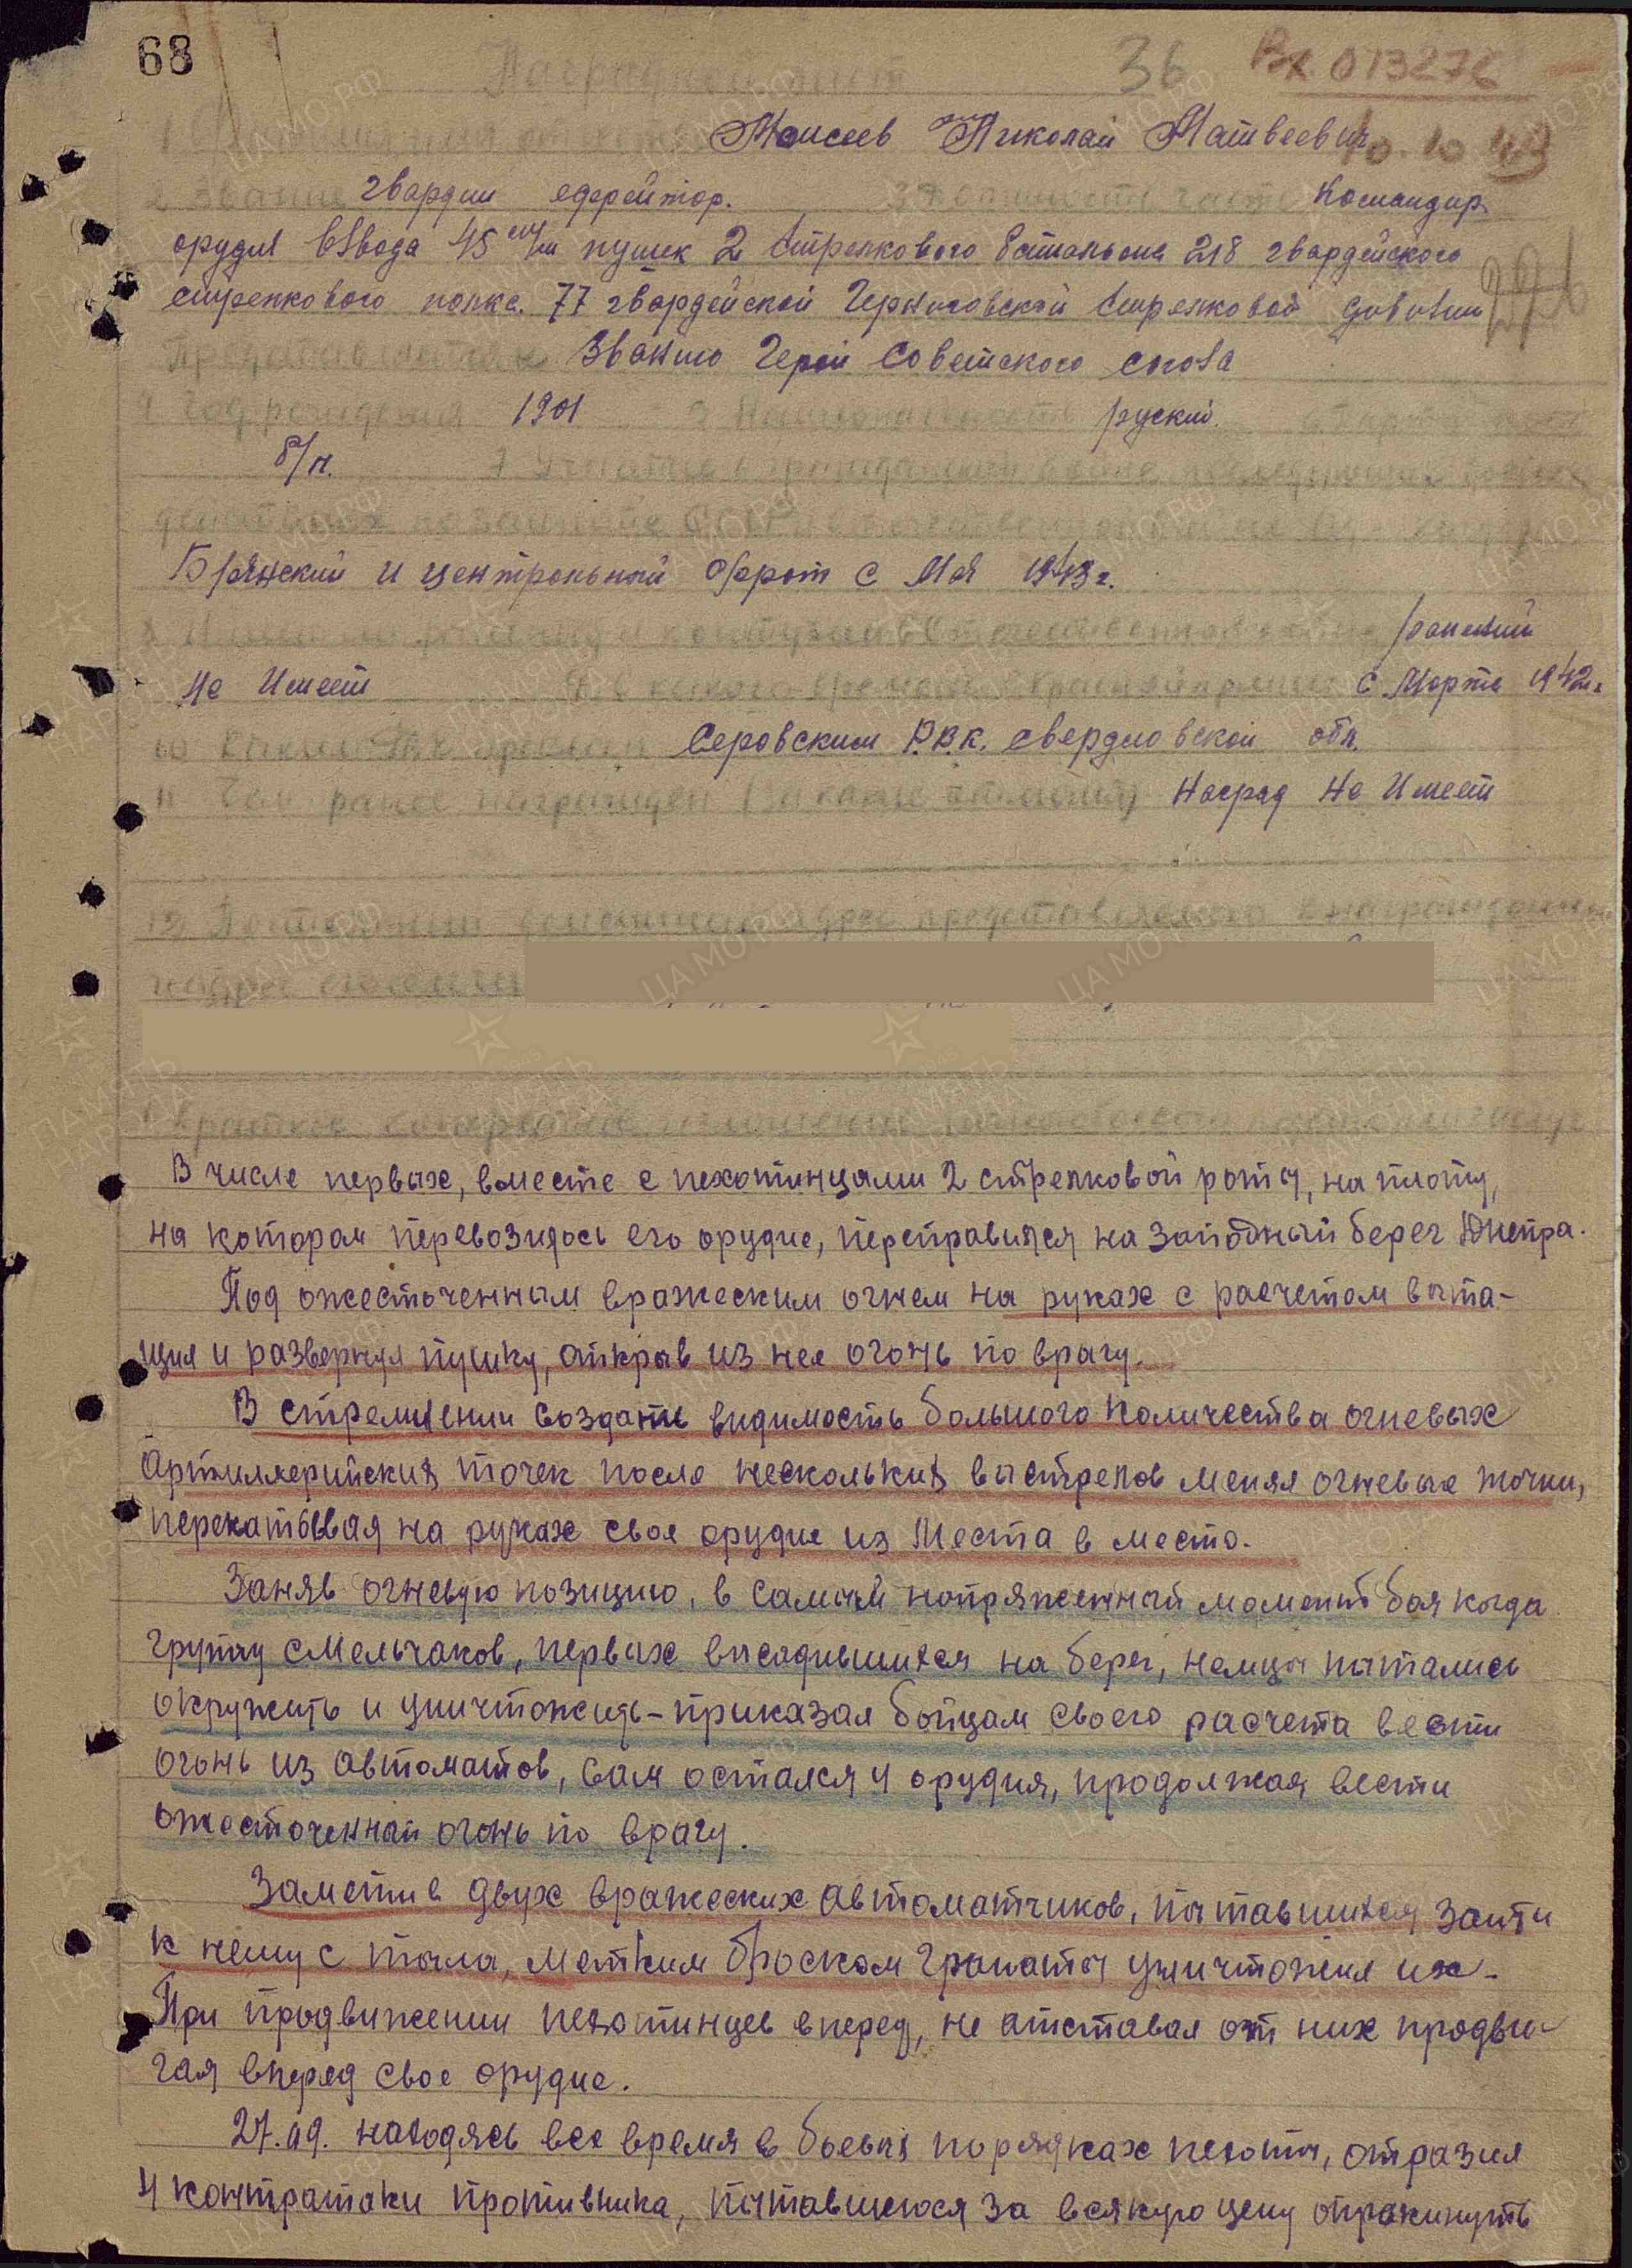 68
Наградной лист 36 Вх. 013276
Моисеев Николай Матвеевич 10.10.43
2 Звание гвардии ефрейтор. Командир
орудия взвода 45 м/м пушек 2 стрелкового батальона 218 гвардейского
стрелкового полка. 77 гвардейской Черниговской стрелковой дивизии
Званию Герой Советского союза
4 Год рождения 1901 5 Национальность руский.
б/п. 7 Участие в гражданской войне
Брянский и центральный фрот с Мая 1943 г.
ранений
Не Имеет с Марта 1942 г
10 Каким РВК призван Серовским Р.В.К. свердловской обл.
11 Чем ранее награжден Наград Не Имеет
12 Постоянный домашний адрес представляемого к награждению
и адрес семьи
В числе первых, вместе с пехотинцами 2 стрелковой роты, на плоту,
на котором перевозилось его орудие, переправился на западный берег Днепра.
Под ожесточенным вражеским огнем на руках с расчетом выта-
щил и развернул пушку, открыв из нее огонь по врагу.
В стремлении создать видимость большого количества огневых
Артиллерийских точек после нескольких выстрелов менял огневые точки,
перекатывая на руках свое орудие из места в место.
Заняв огневую позицию, в самый напряженный момент боя когда
группу смельчаков, первых высадившихся на берег, немцы пытались
окружить и уничтожить - приказал бойцам своего расчета вести
огонь из автоматов, сам остался у орудия, продолжая вести
ожесточенный огонь по врагу.
Заметив двух вражеских автоматчиков, пытавшихся зайти
к нему с тыла, метким броском гранаты уничтожил их-
При продвижении пехотинцев вперед, не отставал от них продви-
гая вперед свое орудие.
27.09. находясь все время в боевых порядках пехоты, отразил
4 контратаки противника, пытавшегося за всякую цену опрокинуть